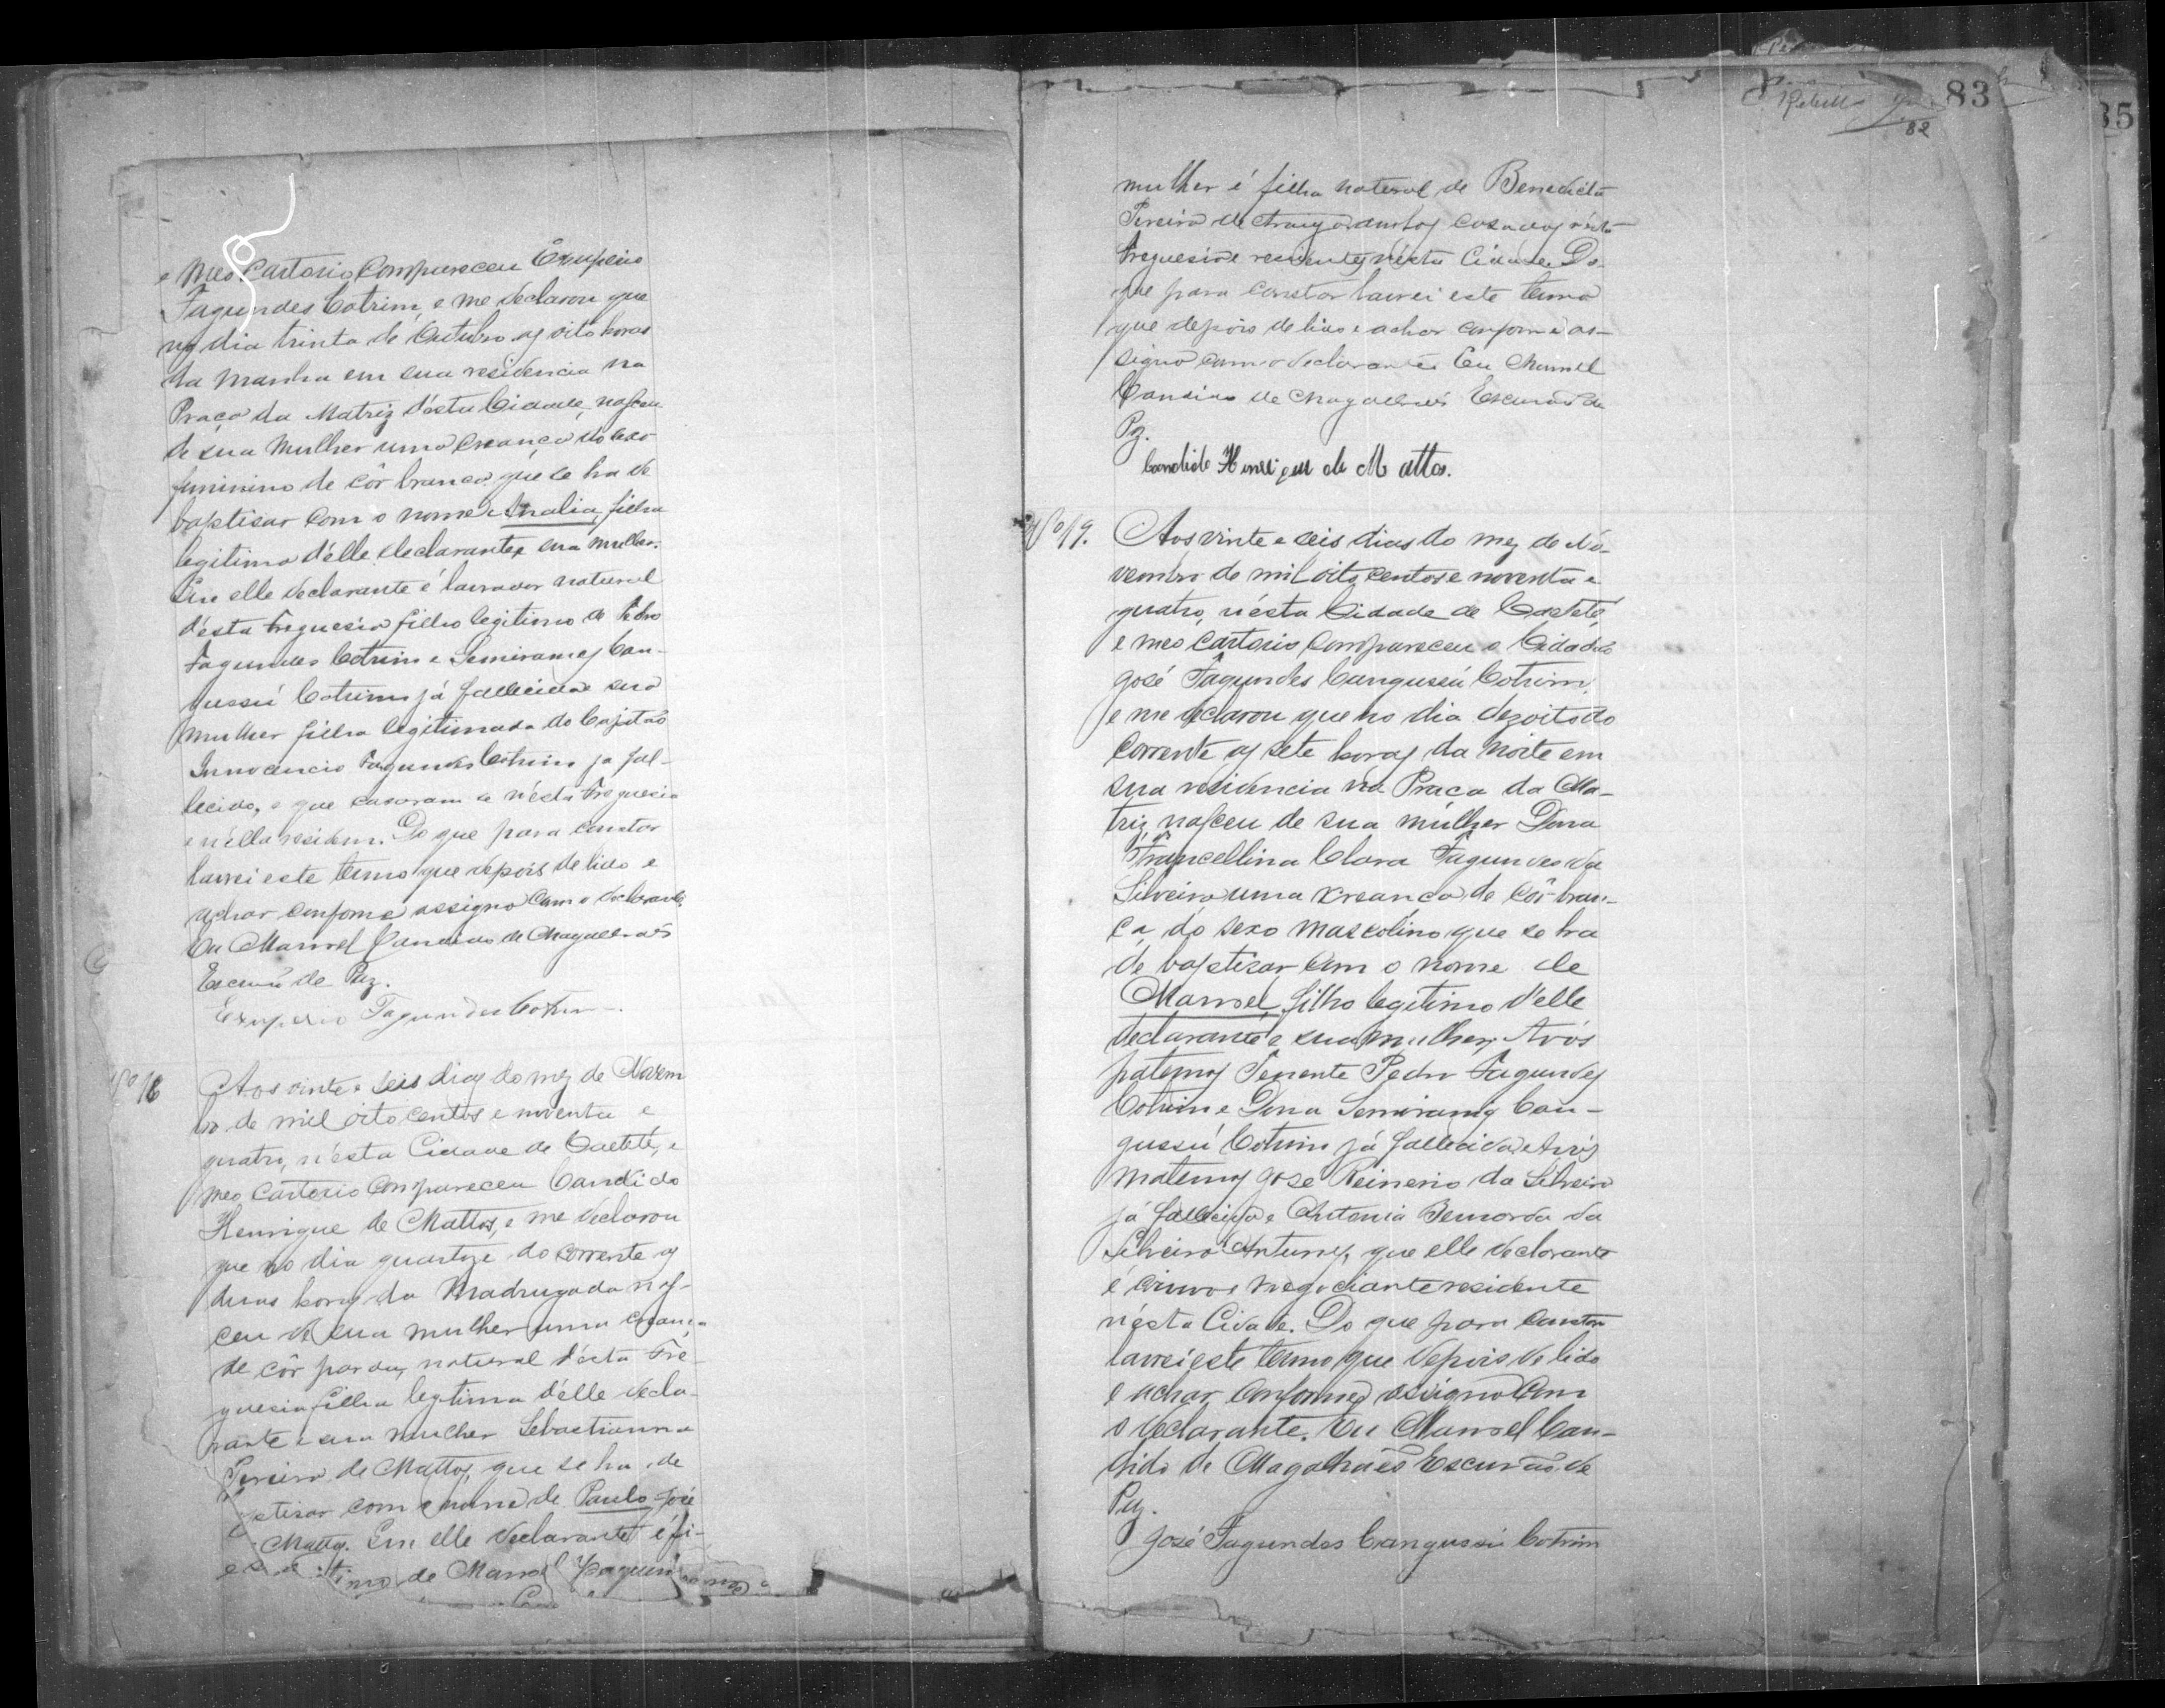 e meo Cartorio Compareceu Exuperio
Fagundes Cotrim, e me declarou que
no dia trinta de Outubro as oito horas
da manha em sua residencia na
Praça da Matriz d'esta Cidade, nasceu
de sua Mulher uma Creança do sexo
feminino de côr branca que se ha de
baptisar com o nome Analia, filha
legitima d'élle declarante e sua mulher.
Que elle declarante é lavrador natural
d'ésta Freguesia filho legitimo de Pedro
Fagundes Cotrim e Semirames Can-
gussú Cotrim já fallecida e sua
mulher filha legitimada do Capitão
Innocencio Fagundes Cotrim ja fal-
lecido, e que casaram se n'ésta Freguesia
e n'élla residem. Do que para constar
lavrei este termo que depois de lido e
achar conforme assigno com o declarante.
Eu Manoel Candido de Magalhaes
Escrivão de Paz.
Exuperio Fagundes Cotrim
Nº 18
Aos vinte e seis dias do mez de Novem
bro de mil oito centos e noventa e
quatro, n'ésta Cidade de Caetété, e
meo Cartorio Compareceu Candido
Henrique de Mattos, e me declarou
que no dia quartoze do corrente as
duas horas da Madrugada nas-
ceu de sua mulher uma creança
de côr parda, natural d'ésta Fre-
guesia filha legitima d'élle decla-
rante e sua mulher Sebastianna
Pereira de Mattos, que se ha de
ptisar com o nome de Paulo José
Mattos. Que elle declarante é fi-
timo de Manoel
83
82
mulher é filha natural de Benedicta
Pereira de Araujo ambos casados n'ésta
Freguesia e residentes n'ésta Cidade. Do
que para constar lavrei este termo
que depois de lido e achar conforme as-
signo com o declarante. Eu Manoel
Candido de Magalhaes Escrivão de
Paz.
Candido Henrique de Mattos.
Nº 19.
Aos vinte e seis dias do mez de No-
vembro de mil oito centos e noventa e
quatro, n'ésta Cidade de Caetété,
e meo Cartorio Compareceu o Cidadão
José Fagundes Cangussú Cotrim,
e me declarou que no dia dezoito do
Corrente as sete horas da Noite em
sua residencia na Praca da Ma-
triz, nasceu de sua mulher Dona
Francellina Clara Fagundes da
Silveira uma creança de côr bran-
ca, do sexo mascolino que se ha
de baptisar com o nome de
Manoel, filho legitimo d'elle
declarante e sua mulher, Avós
paternos Tenente Pedro Fagundes
Cotrim e Dona Semiramis Can-
gussú Cotrim já fallecida e Avós
maternos José Reinerio da Silveira
já fallecido e Antonia Bernarda da
Silveira Antunes, que elle declarante
é negociante residente
n'ésta Cidade. Do que para constar
lavrei este termo que depois de lido
e achar conforme assigno com
o declarante. Eu Manoel Can-
dido de Magalhaes Escrivão de
Paz.
José Fagundes Cangussú Cotrim